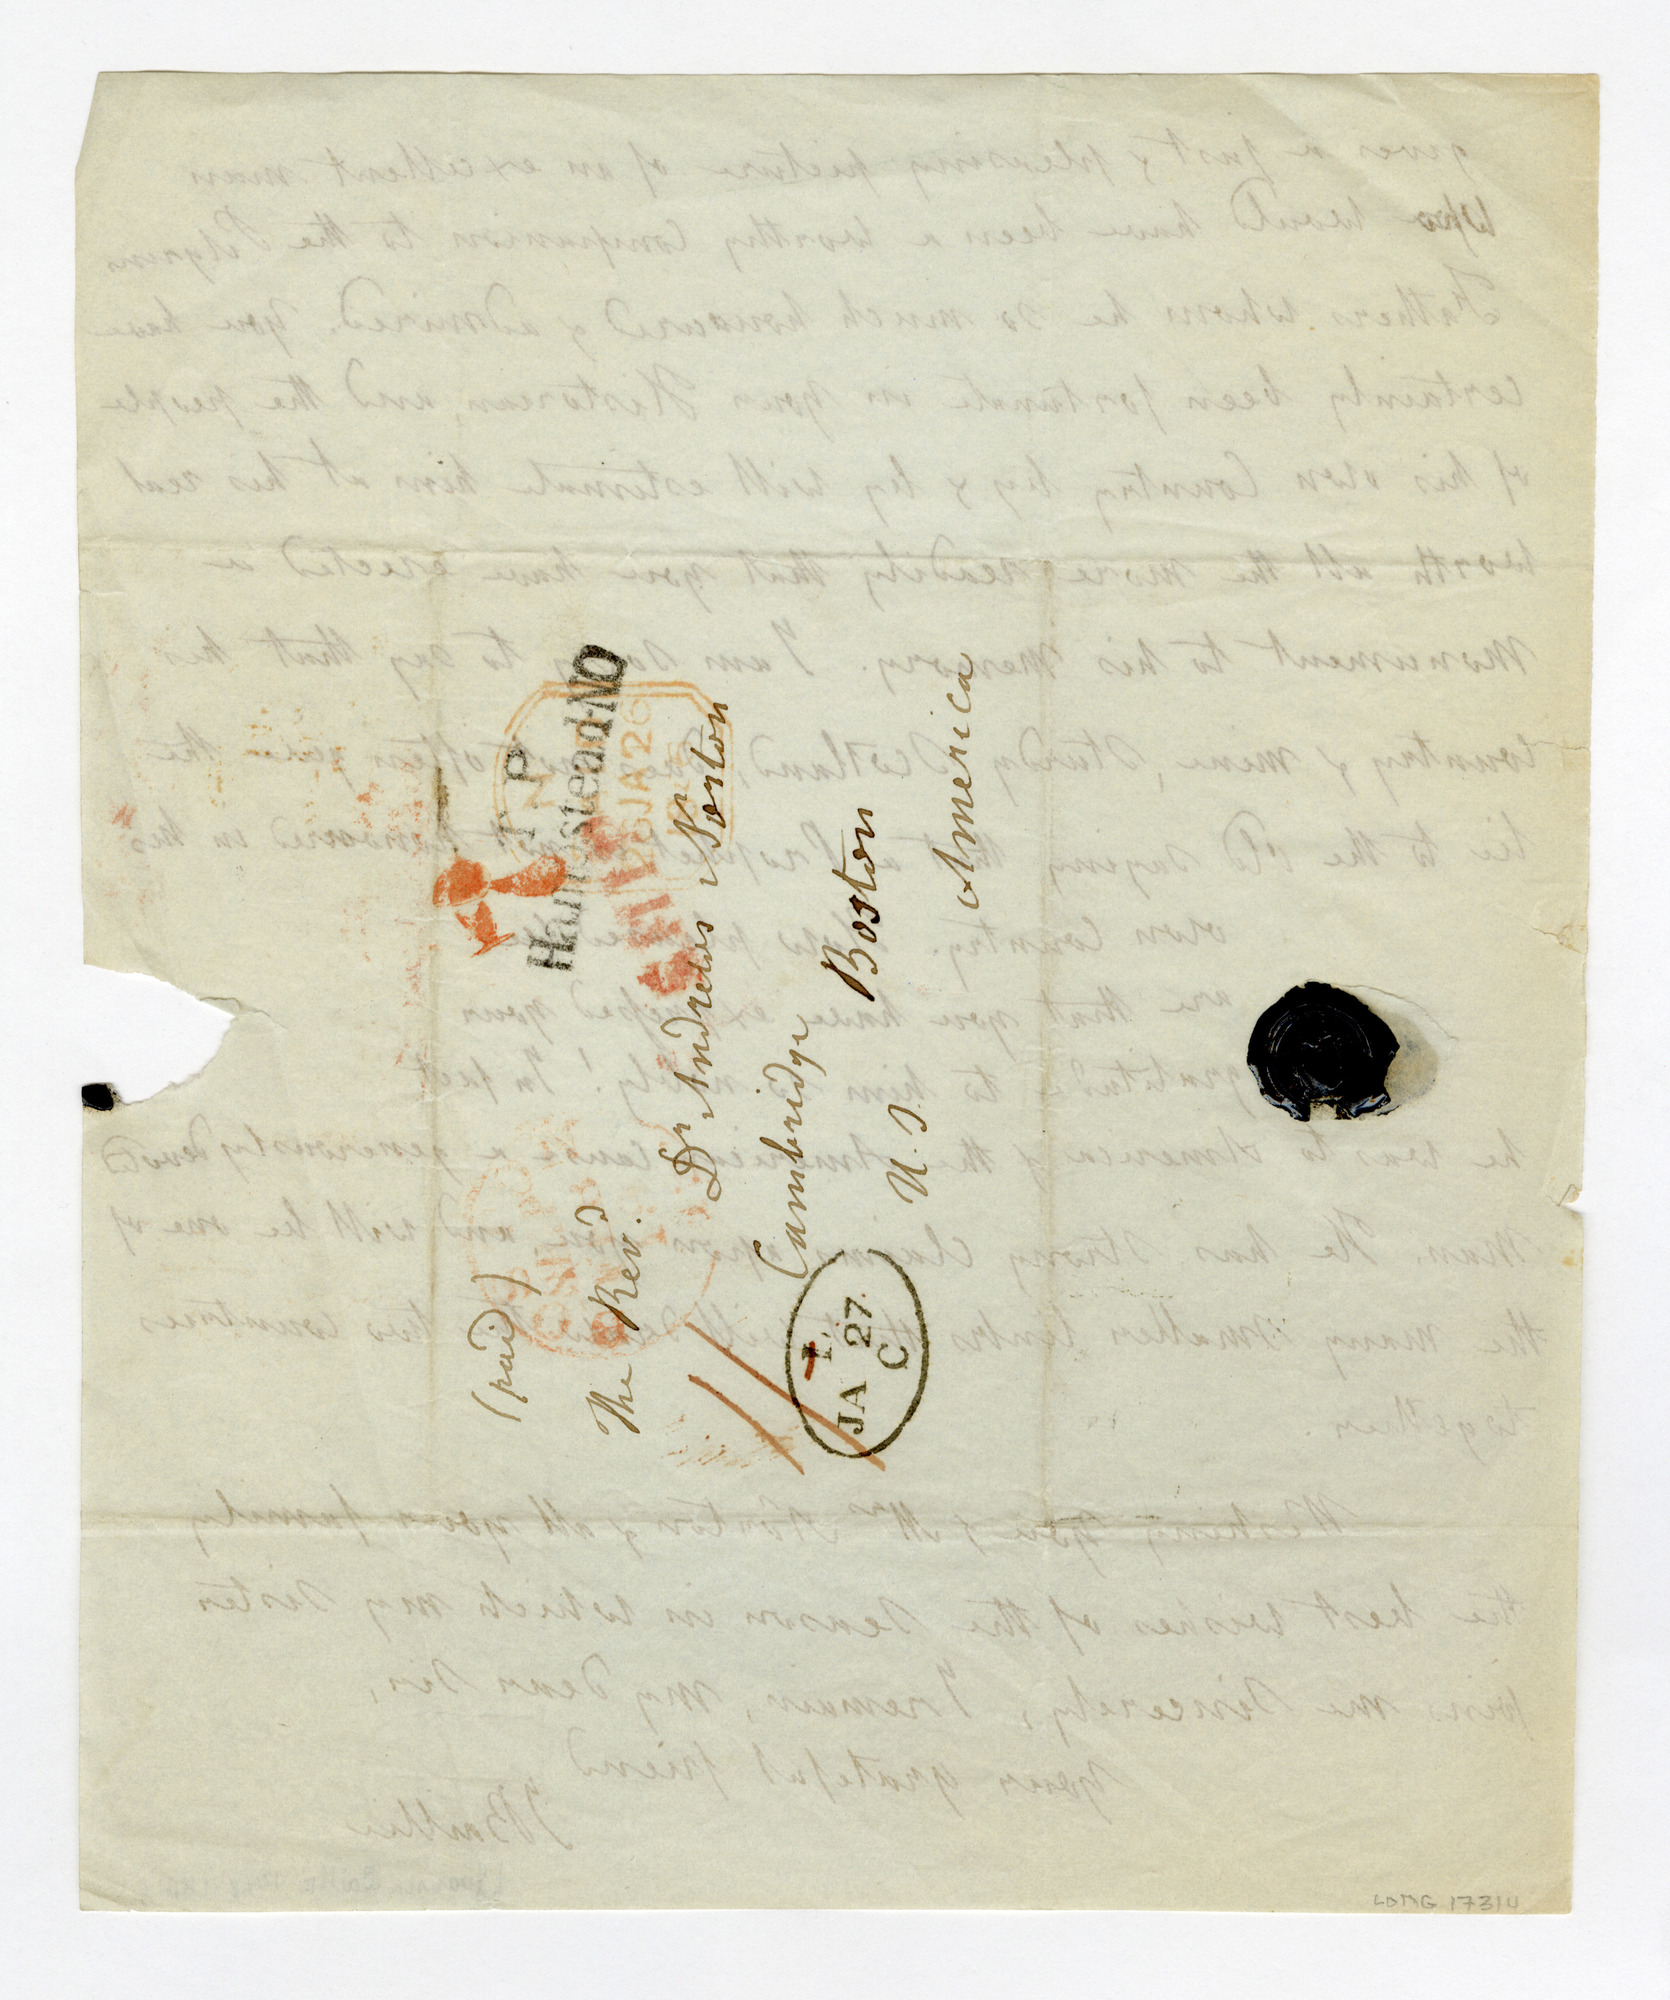 (paid)
The Revd. Dr Andrews Norton
Cambridge Boston
U. S. America
T.P
Hampstead N.O
JA 26
PAID
JA 27
C
gives a just & pleasing picture of an excellent man
Who would have been a worthy Companion to the Pilgrim
Fathers whom he so much honoured & admired. You have
certainly been fortunate in your Historian, and the people
of his own Country by & by will estimate him at his real
worth all the more readily that you have erected a
Monument to his Memory. I am sorry to say that his
Country & mine, sturdy Scotland, often the
lie to the old saying that a Prophet not honoured in his
own Country.
are that you have expressed your
gratitude to him so nobly! In fact
he was to America & the American cause a generously devoted
Man. He has strong claims upon you, and will be one of
the many smaller links that will the two countries
together.
Wishing you & Mrs Norton & all your family
the best wishes of the season in which my Sister
joins me sincerely, I remain, my dear Sir,
your grateful friend
J Baillie
LONG 17314